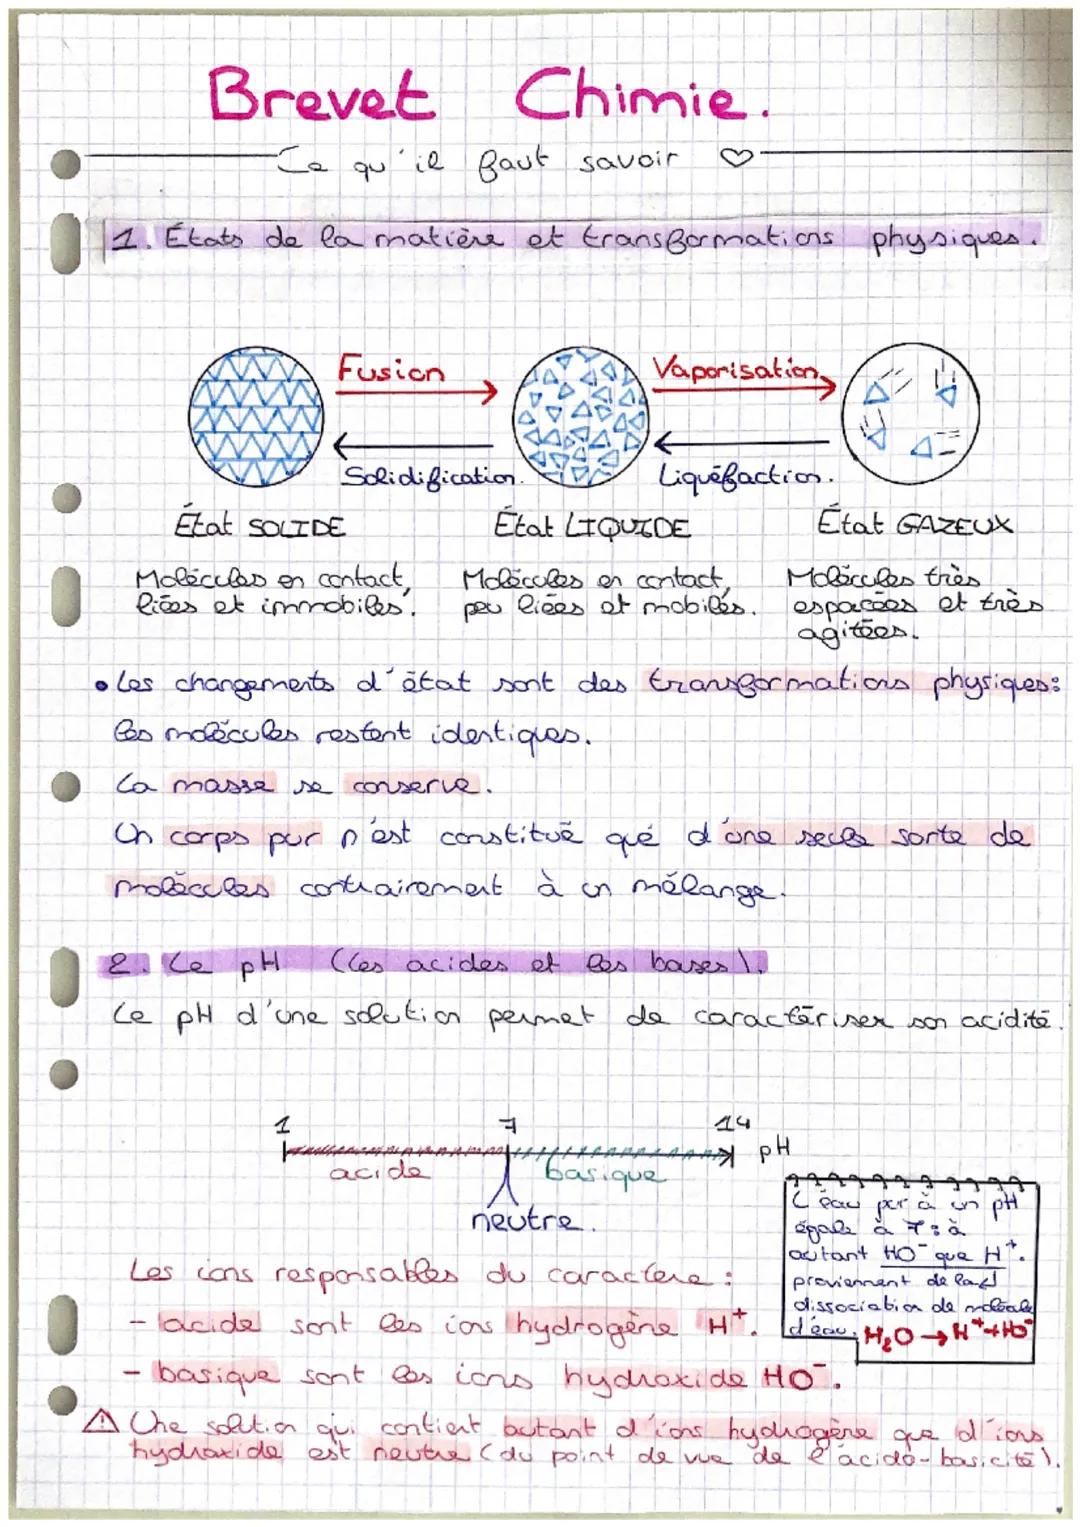 Brevet Chimie.
Ce qu'il faut savoir ♡
1. États de la matière et transformations physiques.
Fusion
Vaporisation
Solidification.
Liquéfaction.
État SOLIDE
État LIQUIDE
État GAZEUX
Molécules en contact,
liées et immobiles.
Molécules en contact,
peu liées et mobiles.
Molécules très
espacées et très
agitées.
• Les changements d'état sont des transformations physiques:
les molécules restent identiques.
La masse se conserve.
Un corps pur n'est constitué que d'une seule sorte de
molécules contrairement à un mélange.
2. Le pH (les acides et les bases).
Le pH d'une solution permet de caractériser son acidité.
1 7 14
pH
acide
basique
neutre.
L'eau pur à un pH
égale à 7: à
autant HO⁻ que H⁺.
proviennent de la
dissociation de molécule
d'eau. H₂O → H⁺+HO⁻
Les ions responsables du caractère :
- acide sont les ions hydrogène H⁺.
- basique sont les ions hydroxide HO⁻.
⚠ Une solution qui contient autant d'ions hydrogène que d'ions
hydroxide est neutre (du point de vue de l'acido-basicité).